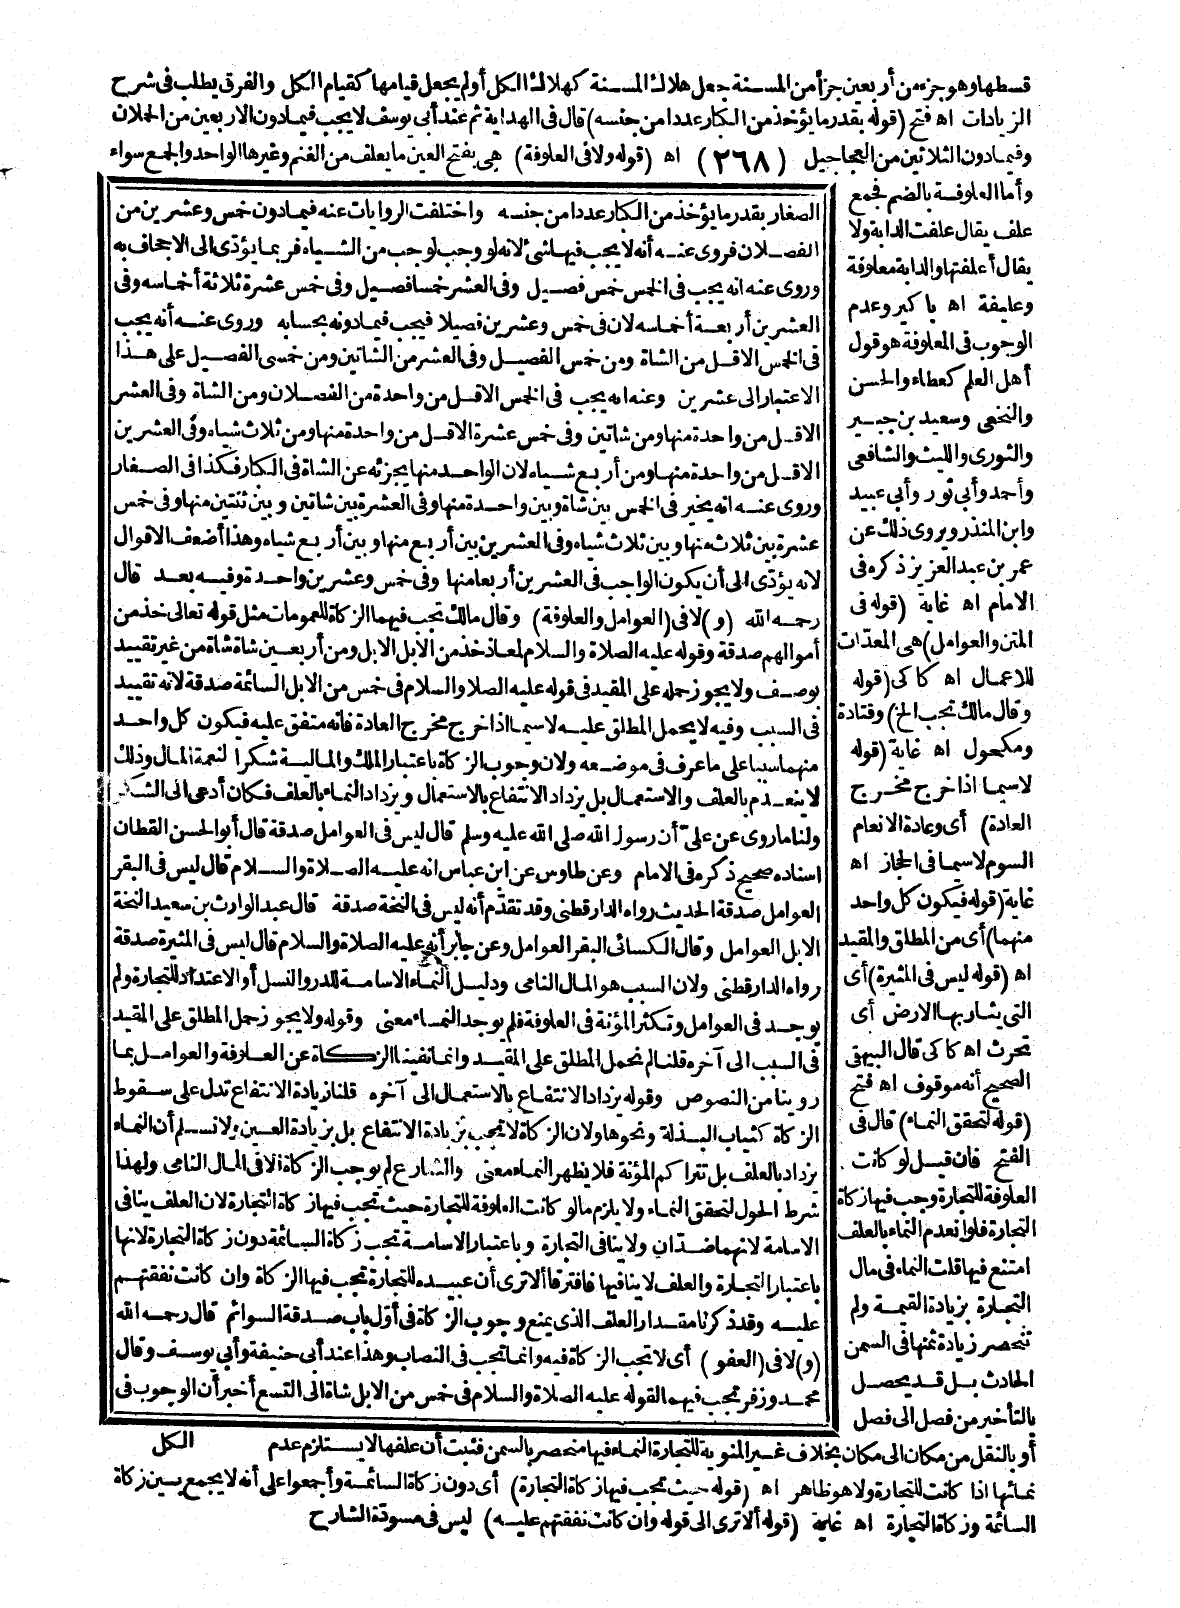 قسطها وهو جزء من أربعين جزأ من المسنة جعل هلاك المسنة كهلاك الكل أولم يجعل قيامها كقيام الكل والفرق يطلب فى شرح
الزيادات اه فتح (قوله بقدر ما يؤخذ من الكبار عددا من جنسه) قال فى الهداية ثم عند أبى يوسف لا يجب فيما دون الاربعين من الحملان
وفيما دون الثلاثين من العجاجيل (٢٦٨) اه (قوله ولا فى العلوفة) هى بفتح العين ما يعلف من الغنم وغيرها الواحد والجمع سواء
وأما العلوفة بالضم فجمع
علف يقال علفت الدابة ولا
يقال أعلفتها والدابة معلوفة
وعليفة اه باكير وعدم
الوجوب فى المعلوفة هو قول
أهل العلم كعطاء والحسن
والنخعى وسعيد بن جبير
والثورى والليث والشافعى
وأحمد وأبى ثور وأبى عبيد
وابن المنذر ويروى ذلك عن
عمر بن عبد العزيز ذكره فى
الامام اه غاية (قوله فى
المتن والعوامل) هى المعدّات
للاعمال اه كاكى (قوله
وقال مالك تجب الخ) وقتادة
ومكحول اه غاية (قوله
لاسيما اذا خرج مخرج
العادة) أى وعادة الانعام
السوم لاسيما فى الحجاز اه
غاية (قوله فيكون كل واحد
منهما) أى من المطلق والمقيد
اه (قوله ليس فى المثيرة) أى
التى يثار بها الارض أى
تحرث اه كاكى قال البيهقى
الصحيح أنه موقوف اه فتح
(قوله لتحقق النماء) قال فى
الفتح فان قيل لو كانت
العلوفة للتجارة وجب فيها زكاة
التجارة فلو انعدم النماء بالعلف
امتنع فيها قلت النماء فى مال
التجارة بزيادة القيمة ولم
تنحصر زيادة ثمنها فى السمن
الحادث بل قد يحصل
بالتأخير من فصل الى فصل
الصغار بقدر ما يؤخذ من الكبار عددا من جنسه واختلفت الروايات عنه فيما دون خمس وعشرين من
الفصلان فروى عنه أنه لا يجب فيها شئ لانه لو وجب لوجب من الشياه فربما يؤدّى الى الاجحاف به
وروى عنه انه يجب فى الخمس خمس فصيل وفى العشر خمسا فصيل وفى خمس عشرة ثلاثة أخماسه وفى
العشرين أربعة أخماسه لان فى خمس وعشرين فصيلا فيجب فيما دونه بحسابه وروى عنه أنه يجب
فى الخمس الاقل من الشاة ومن خمس الفصيل وفى العشر من الشاتين ومن خمسى الفصيل على هذا
الاعتبار الى عشرين وعنه انه يجب فى الخمس الاقل من واحدة من الفصلان ومن الشاة وفى العشر
الاقل من واحدة منها ومن شاتين وفى خمس عشرة الاقل من واحدة منها ومن ثلاث شياه وفى العشرين
الاقل من واحدة منها ومن أربع شياه لان الواحد منها يجزئه عن الشاة فى الكبار فكذا فى الصغار
وروى عنه انه يخير فى الخمس بين شاة وبين واحدة منها وفى العشرة بين شاتين وبين ثنتين منها وفى خمس
عشرة بين ثلاث منها وبين ثلاث شياه وفى العشرين بين أربع منها وبين أربع شياه وهذا أضعف الاقوال
لانه يؤدّى الى أن يكون الواجب فى العشرين أربعا منها وفى خمس وعشرين واحدة وفيه بعد قال
رحمه الله (و) لا فى (العوامل والعلوفة) وقال مالك تجب فيهما الزكاة للعمومات مثل قوله تعالى خذ من
أموالهم صدقة وقوله عليه الصلاة والسلام لمعاذ خذ من الابل الابل ومن أربعين شاة شاة من غير تقييد
بوصف ولا يجوز حمله على المقيد فى قوله عليه الصلا والسلام فى خمس من الابل السائمة صدقة لانه تقييد
فى السبب وفيه لا يحمل المطلق عليه لاسيما اذا خرج مخرج العادة فانه متفق عليه فيكون كل واحد
منهما سببا على ما عرف فى موضعه ولان وجوب الزكاة باعتبار الملك والمالية شكرا لنعمة المال وذلك
لا ينعدم بالعلف والاستعمال بل يزداد الانتفاع بالاستعمال ويزداد النماء بالعلف فكان أدعى الى الشكر
ولنا ما روى عن علىّ أن رسول الله صلى الله عليه وسلم قال ليس فى العوامل صدقة قال أبو الحسن القطان
اسناده صحيح ذكره فى الامام وعن طاوس عن ابن عباس انه عليه الصلاة والسلام قال ليس فى البقر
العوامل صدقة الحديث رواه الدارقطنى وقد تقدّم أنه ليس فى النخة صدقة قال عبد الوارث بن سعيد النخة
الابل العوامل وقال الكسائى البقر العوامل وعن جابر أنه عليه الصلاة والسلام قال ليس فى المثيرة صدقة
رواه الدارقطنى ولان السبب هو المال النامى ودليل النماء الاسامة للدر والنسل أو الاعتداد للتجارة ولم
يوجد فى العوامل وتكثر المؤنة فى العلوفة فلم يوجد النماء معنى وقوله ولا يجوز حمل المطلق على المقيد
فى السبب الى آخره قلنا لم نحمل المطلق على المقيد وانما نفينا الزكاة عن العلوفة والعوامل بما
روينا من النصوص وقوله يزداد الانتفاع بالاستعمال الى آخره قلنا زيادة الانتفاع تدل على سقوط
الزكاة كثياب البذلة ونحوها ولان الزكاة لا تجب بزيادة الانتفاع بل بزيادة العين ولا نسلم أن النماء
يزداد بالعلف بل تتراكم المؤنة فلا يظهر النماء معنى والشارع لم يوجب الزكاة الا فى المال النامى ولهذا
شرط الحول لتحقق النماء ولا يلزم ما لو كانت العلوفة للتجارة حيث تجب فيها زكاة التجارة لان العلف ينافى
الاسامة لانهما ضدّان ولا ينافى التجارة وباعتبار الاسامة تجب زكاة السائمة دون زكاة التجارة لانها
باعتبار التجارة والعلف لا ينافيها فافترقا ألا ترى أن عبيده للتجارة تجب فيها الزكاة وان كانت نفقتهم
عليه وقد ذكرنا مقدار العلف الذى يمنع وجوب الزكاة فى أوّل باب صدقة السوائم قال رحمه الله
(و) لا فى (العفو) أى لا تجب الزكاة فيه وانما تجب فى النصاب وهذا عند أبى حنيفة وأبى يوسف وقال
محمد وزفر تجب فيهما لقوله عليه الصلاة والسلام فى خمس من الابل شاة الى التسع أخبر أن الوجوب فى
الكل
أو بالنقل من مكان الى مكان بخلاف غير المنوية للتجارة النماء فيها منحصر بالسمن فثبت أن علفها لا يستلزم عدم
نمائها اذا كانت للتجارة ولا هو ظاهر اه (قوله حيث تجب فيها زكاة التجارة) أى دون زكاة السائمة وأجمعوا على أنه لا يجمع بين زكاة
السائمة وزكاة التجارة اه غاية (قوله ألا ترى الى قوله وان كانت نفقتهم عليه) ليس فى مسودّة الشارح